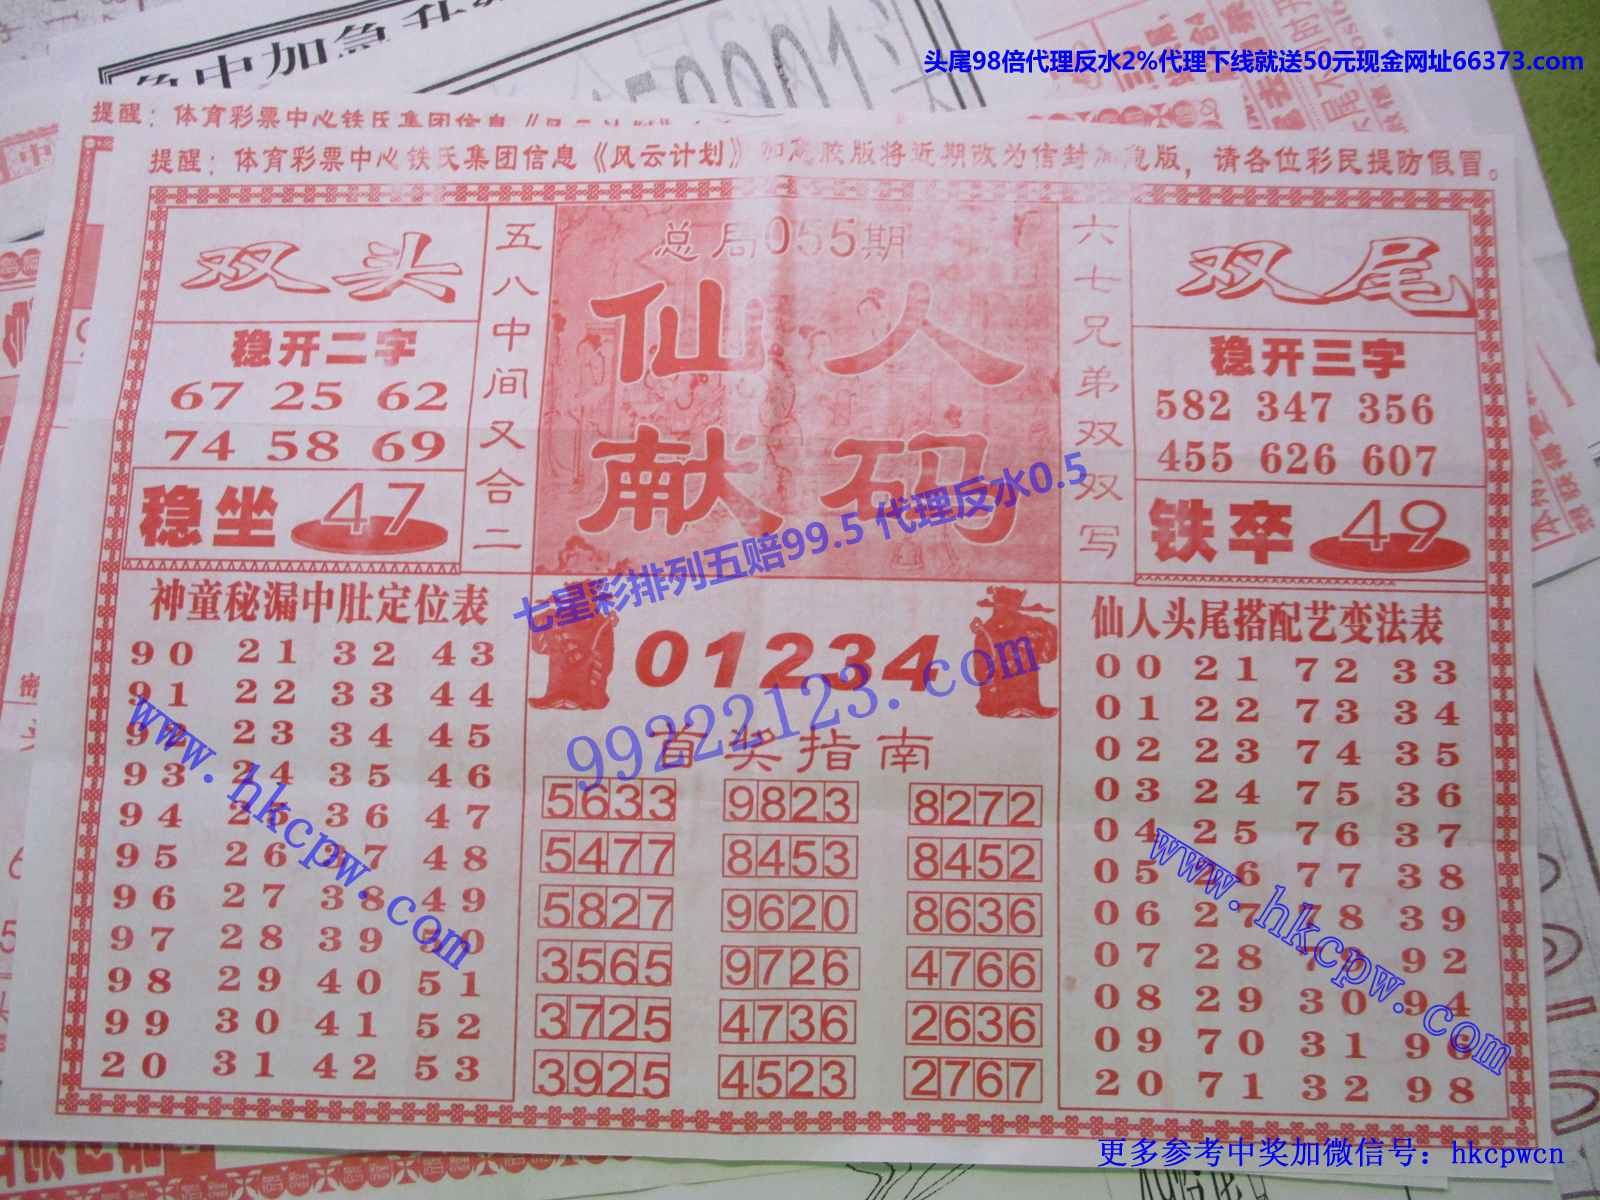 头尾98倍代理反水2%代理下线就送50元现金网址66373.com
提醒：体育彩票中心铁氏集团信息《风云计划》
提醒：体育彩票中心铁氏集团信息《风云计划》加急胶版将近期改为信封加急版，请各位彩民提防假冒。
双头
稳开二字
67 25 62
74 58 69
稳坐 47
五八中间又合二
总局055期
仙人
献码
六七兄弟双双写
双尾
稳开三字
582 347 356
455 626 607
铁卒 49
七星彩排列五赔99.5 代理反水0.5
神童秘漏中肚定位表
90 21 32 43
91 22 33 44
92 23 34 45
93 24 35 46
94 25 36 47
95 26 37 48
96 27 38 49
97 28 39 50
98 29 40 51
99 30 41 52
20 31 42 53
01234
99222123.com
首奖指南
5633 9823 8272
5477 8453 8452
5827 9620 8636
3565 9726 4766
3725 4736 2636
3925 4523 2767
仙人头尾搭配艺变法表
00 21 72 33
01 22 73 34
02 23 74 35
03 24 75 36
04 25 76 37
05 26 77 38
06 27 78 39
07 28 79 92
08 29 30 94
09 70 31 96
20 71 32 98
www.hkcpw.com
www.hkcpw.com
更多参考中奖加微信号：hkcpwcn